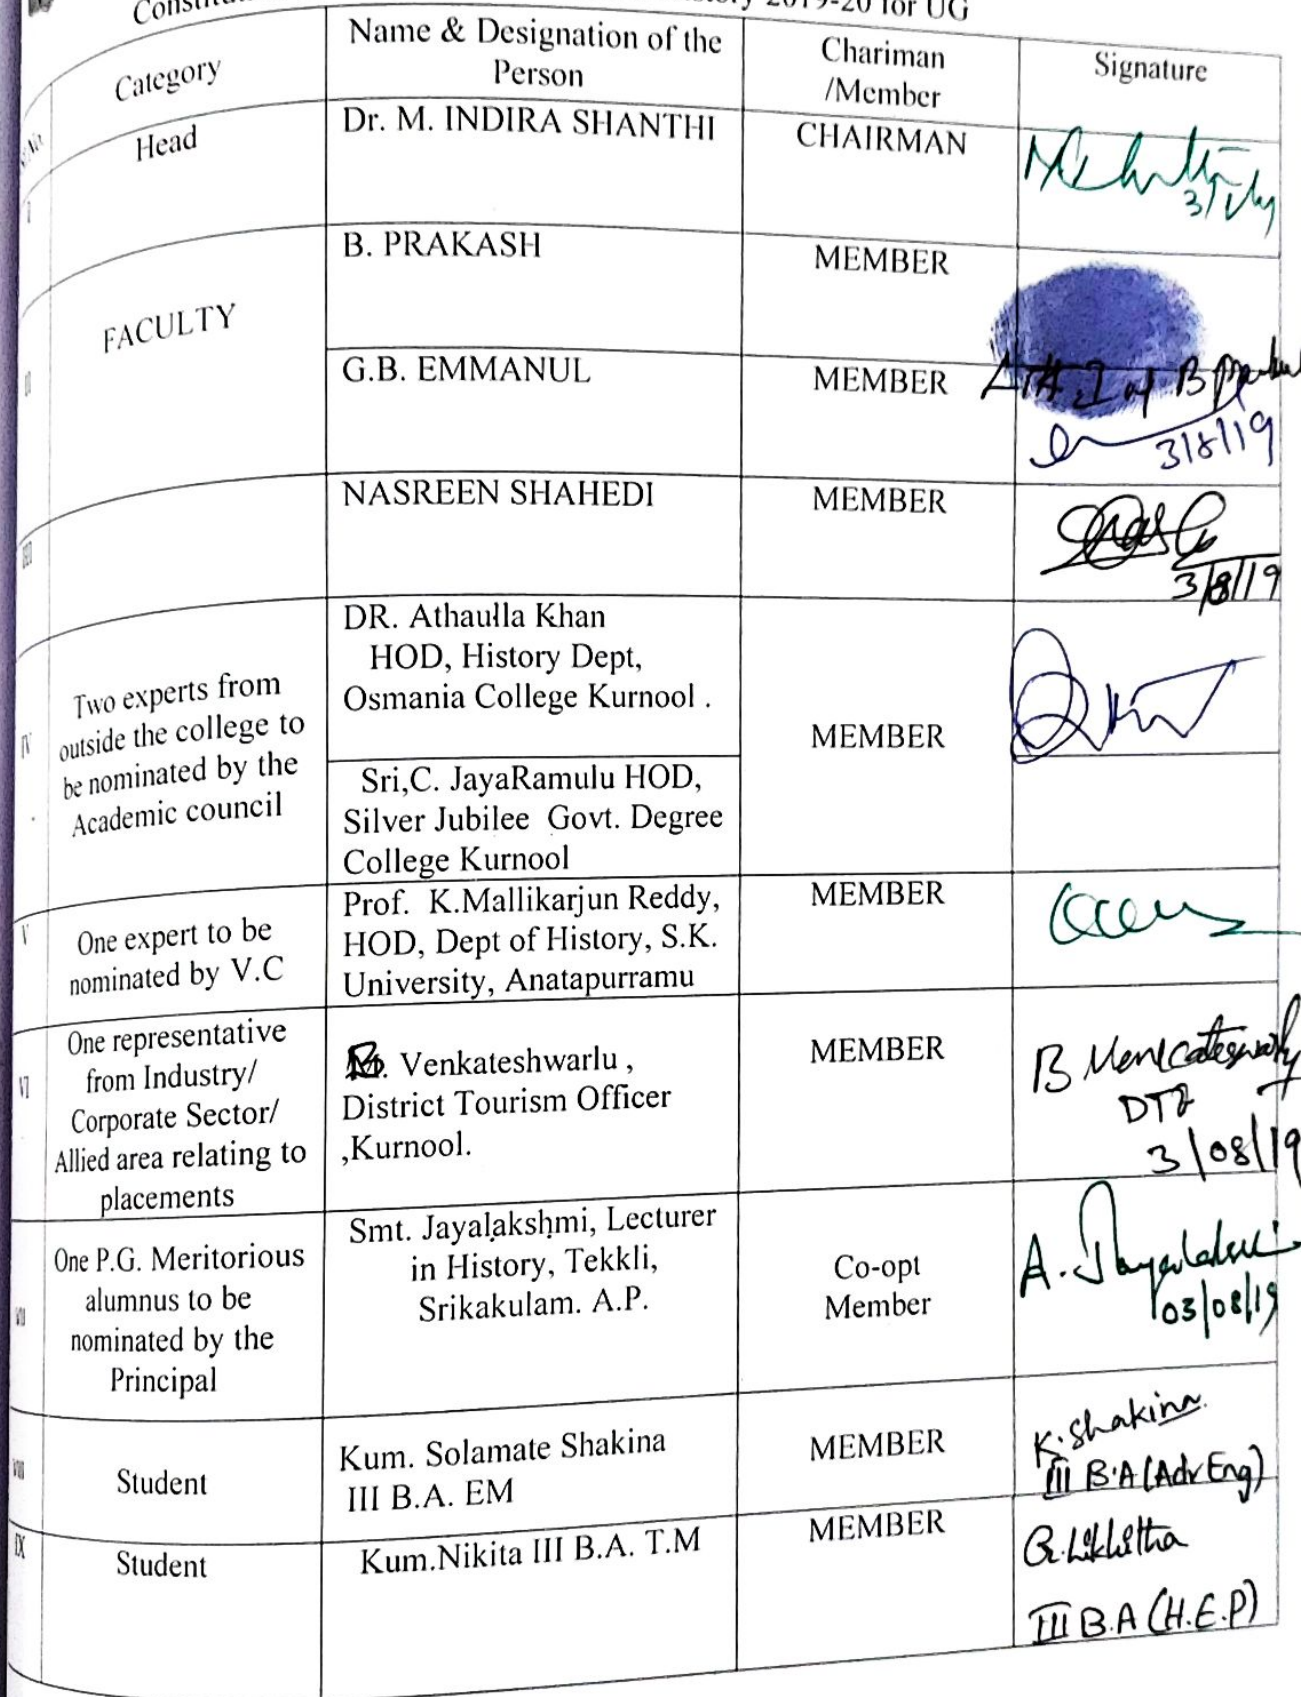 2019-20 for UG
S.No.
Category
Name & Designation of the
Person
Chariman
/Member
Signature
I
Head
Dr. M. INDIRA SHANTHI
CHAIRMAN
II
FACULTY
B. PRAKASH
MEMBER
of B
G.B. EMMANUL
MEMBER
3/8/19
III
NASREEN SHAHEDI
MEMBER
3/8/19
IV
Two experts from
outside the college to
be nominated by the
Academic council
DR. Athaulla Khan
HOD, History Dept,
Osmania College Kurnool .
MEMBER
Sri,C. JayaRamulu HOD,
Silver Jubilee Govt. Degree
College Kurnool
V
One expert to be
nominated by V.C
Prof. K.Mallikarjun Reddy,
HOD, Dept of History, S.K.
University, Anatapurramu
MEMBER
VI
One representative
from Industry/
Corporate Sector/
Allied area relating to
placements
B. Venkateshwarlu ,
District Tourism Officer
,Kurnool.
MEMBER
B Venkateswarlu
3/08/19
VII
One P.G. Meritorious
alumnus to be
nominated by the
Principal
Smt. Jayalakshmi, Lecturer
in History, Tekkli,
Srikakulam. A.P.
Co-opt
Member
A. Jayalakshmi
03/08/19
VIII
Student
Kum. Solamate Shakina
III B.A. EM
MEMBER
K. Shakina
III B.A (Adv Eng)
IX
Student
Kum.Nikita III B.A. T.M
MEMBER
G. Likhitha
III B.A (H.E.P)